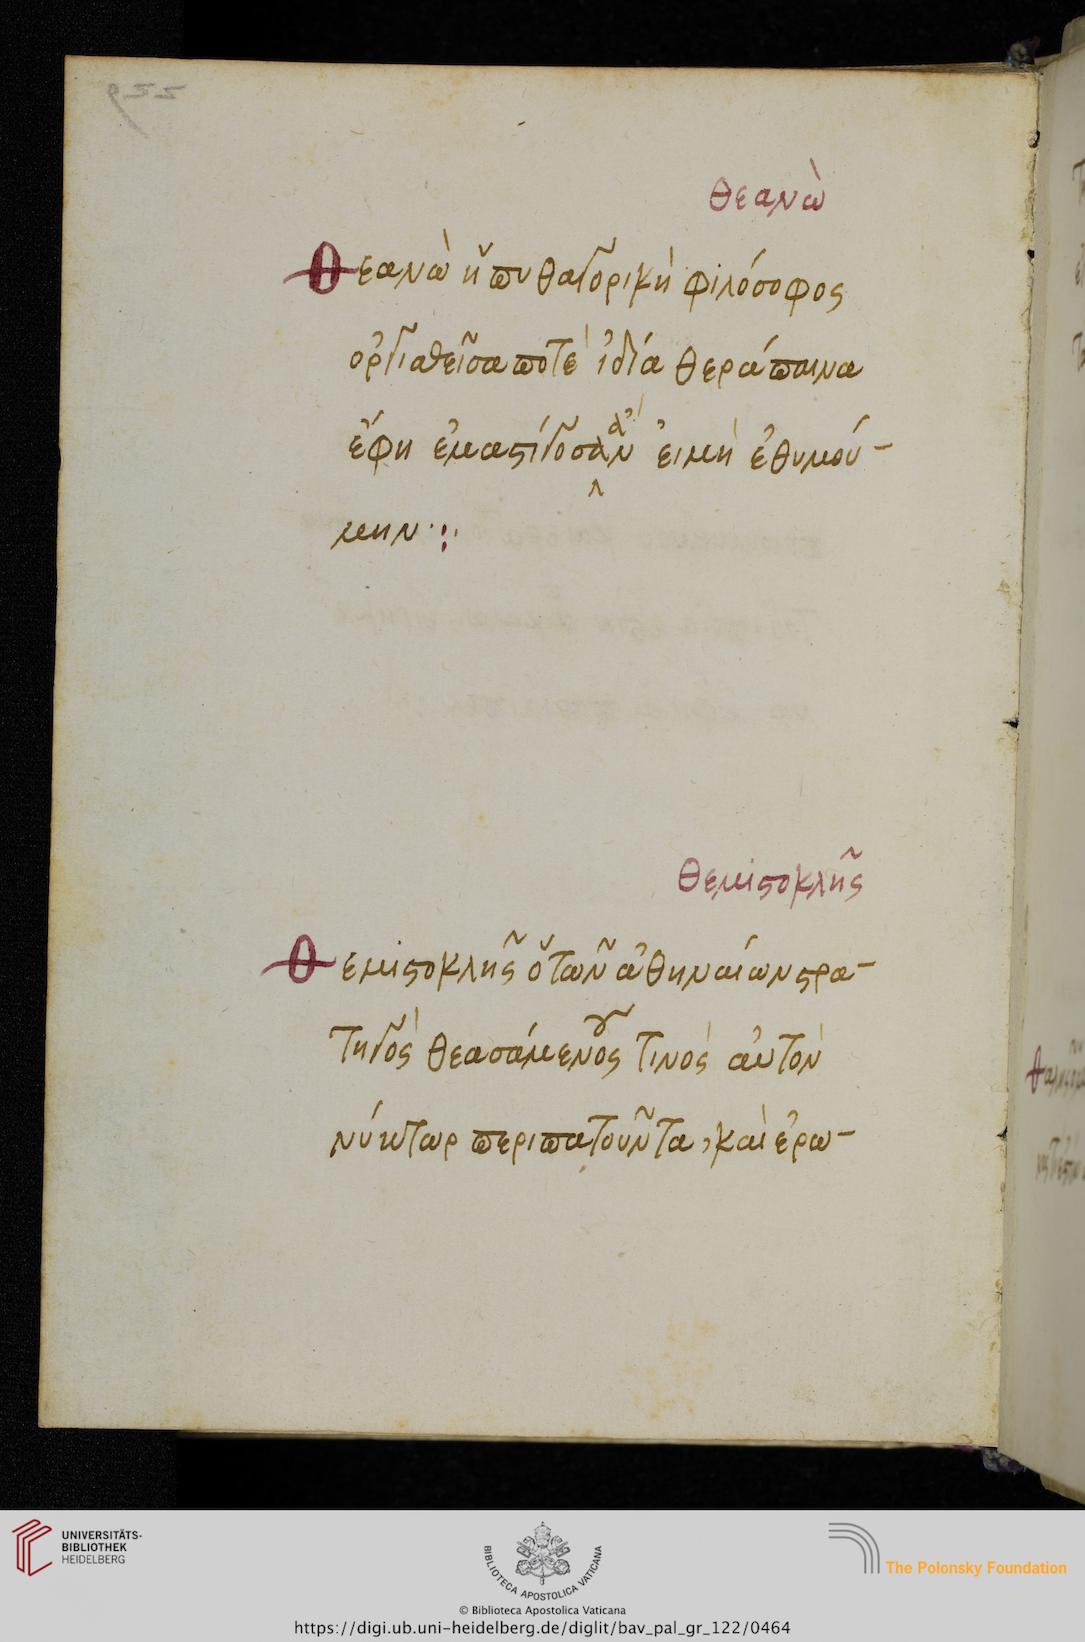 θεανὼ
Θεανὼ ἡ πυθαγορικὴ φιλόσοφος
ὀργιαθεῖσα ποτὲ ἰδία θεράπαινα
ἔφη ἐμαστίγοσὰ ἂν εἰ μὴ ἐθυμού-
μην :
θεμιστοκλῆς
Θεμιστοκλῆς ὁ τῶν ἀθηναίων στρα-
τηγὸς θεασάμενος τινὸς αὐτὸν
νύκτωρ περιπατοῦντα, καὶ ἐρω-
UNIVERSITÄTS-
BIBLIOTHEK
HEIDELBERG
BIBLIOTECA APOSTOLICA VATICANA
© Biblioteca Apostolica Vaticana
The Polonsky Foundation
https://digi.ub.uni-heidelberg.de/diglit/bav_pal_gr_122/0464